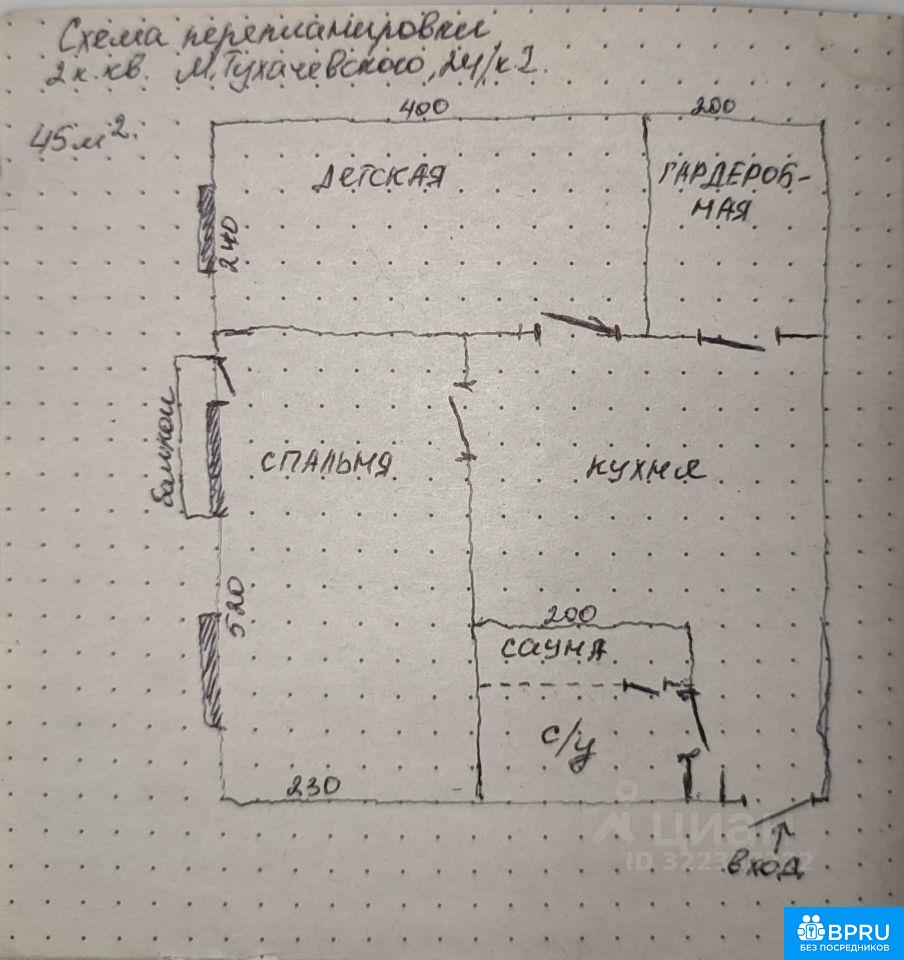 Схема перепланировки
2к.кв. М.Тухачевского, 24/к2.
45м².
400
200
ДЕТСКАЯ
ГАРДЕРОБ-
НАЯ
240
балкон
СПАЛЬНЯ
КУХНЯ
520
200
САУНА
С/у
230
циан
вход
BPRU
БЕЗ ПОСРЕДНИКОВ